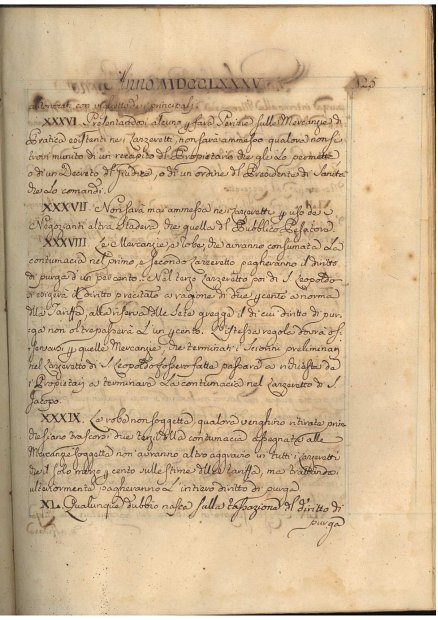 Anno MDCCLXXXV
325
autorizati con viglietto de i principali.
XXXVI. Presentandosi alcuno p fare Perizie sulle Mercanzie di
Pratica esistenti ne i Lazzeretti, non sarà ammesso qualora non si
trovi munito di un recapito del Proprietario che glie lo permetta
o di un Decreto di Giudice, o di un ordine del Presidente di Sanità
che lo comandi.
XXXVII. Non sarà mai ammessa ne i Lazzeretti p uso de
Negozianti altra Stadera che quella di Pubblico Pesatore.
XXXVIII. Le Mercanzie, e robe, che avranno consumata la
contumacia nel primo, e secondo Lazzeretto pagheranno il diritto
di purga d'un per cento. Nel terzo Lazzeretto poi di S. Leopoldo
si esigerà il diritto precitato a ragione di due p cento a norma
della Tariffa, alla riserva delle Sete gregge il di cui diritto di pur,
ga non oltrepasserà l'un p cento. L'istessa regola dovrà os,
servarsi p quelle Mercanzie, che terminati i sciorini preliminari
nel Lazzeretto di S. Leopoldo fossero fatte passare a richiesta de
i Proprietarj a terminare la contumacia nel Lazzeretto di S.
Jacopo.
XXXIX. Le robe non soggette, qualora venghino ritirate pria
che siano trascorsi due terzi della contumacia assegnata alle
Mercanzie soggette non avranno altro aggravio in tutti i Lazzeretti
che il solo mezzo p cento sulle stime della tariffa, ma trattandosi
ulteriormente pagheranno l'intiero diritto di purga
XL. Qualunque dubbio nasca sulla tassazione del diritto di
purga